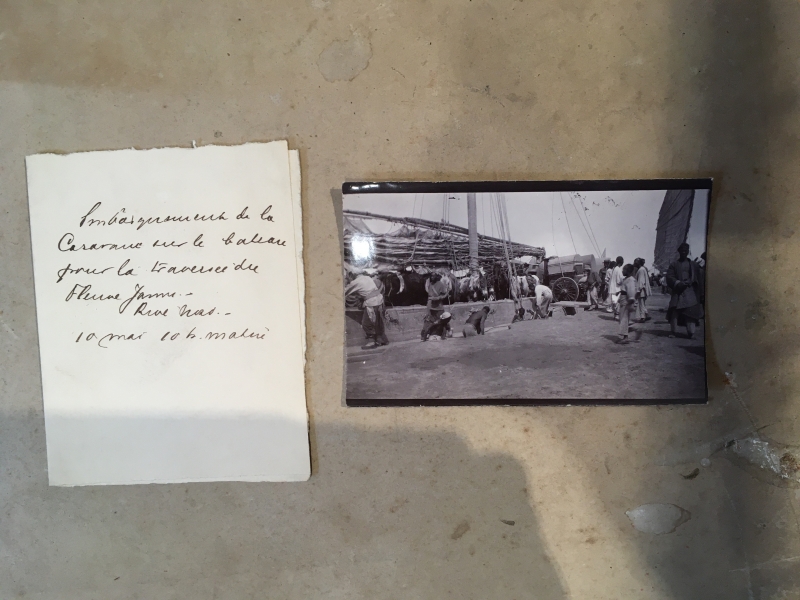 Embarquement de la
Caravane sur le bateau
pour la traversée du
Fleuve Jaune.-
Rive Nord.-
10 mai 10 h. matin